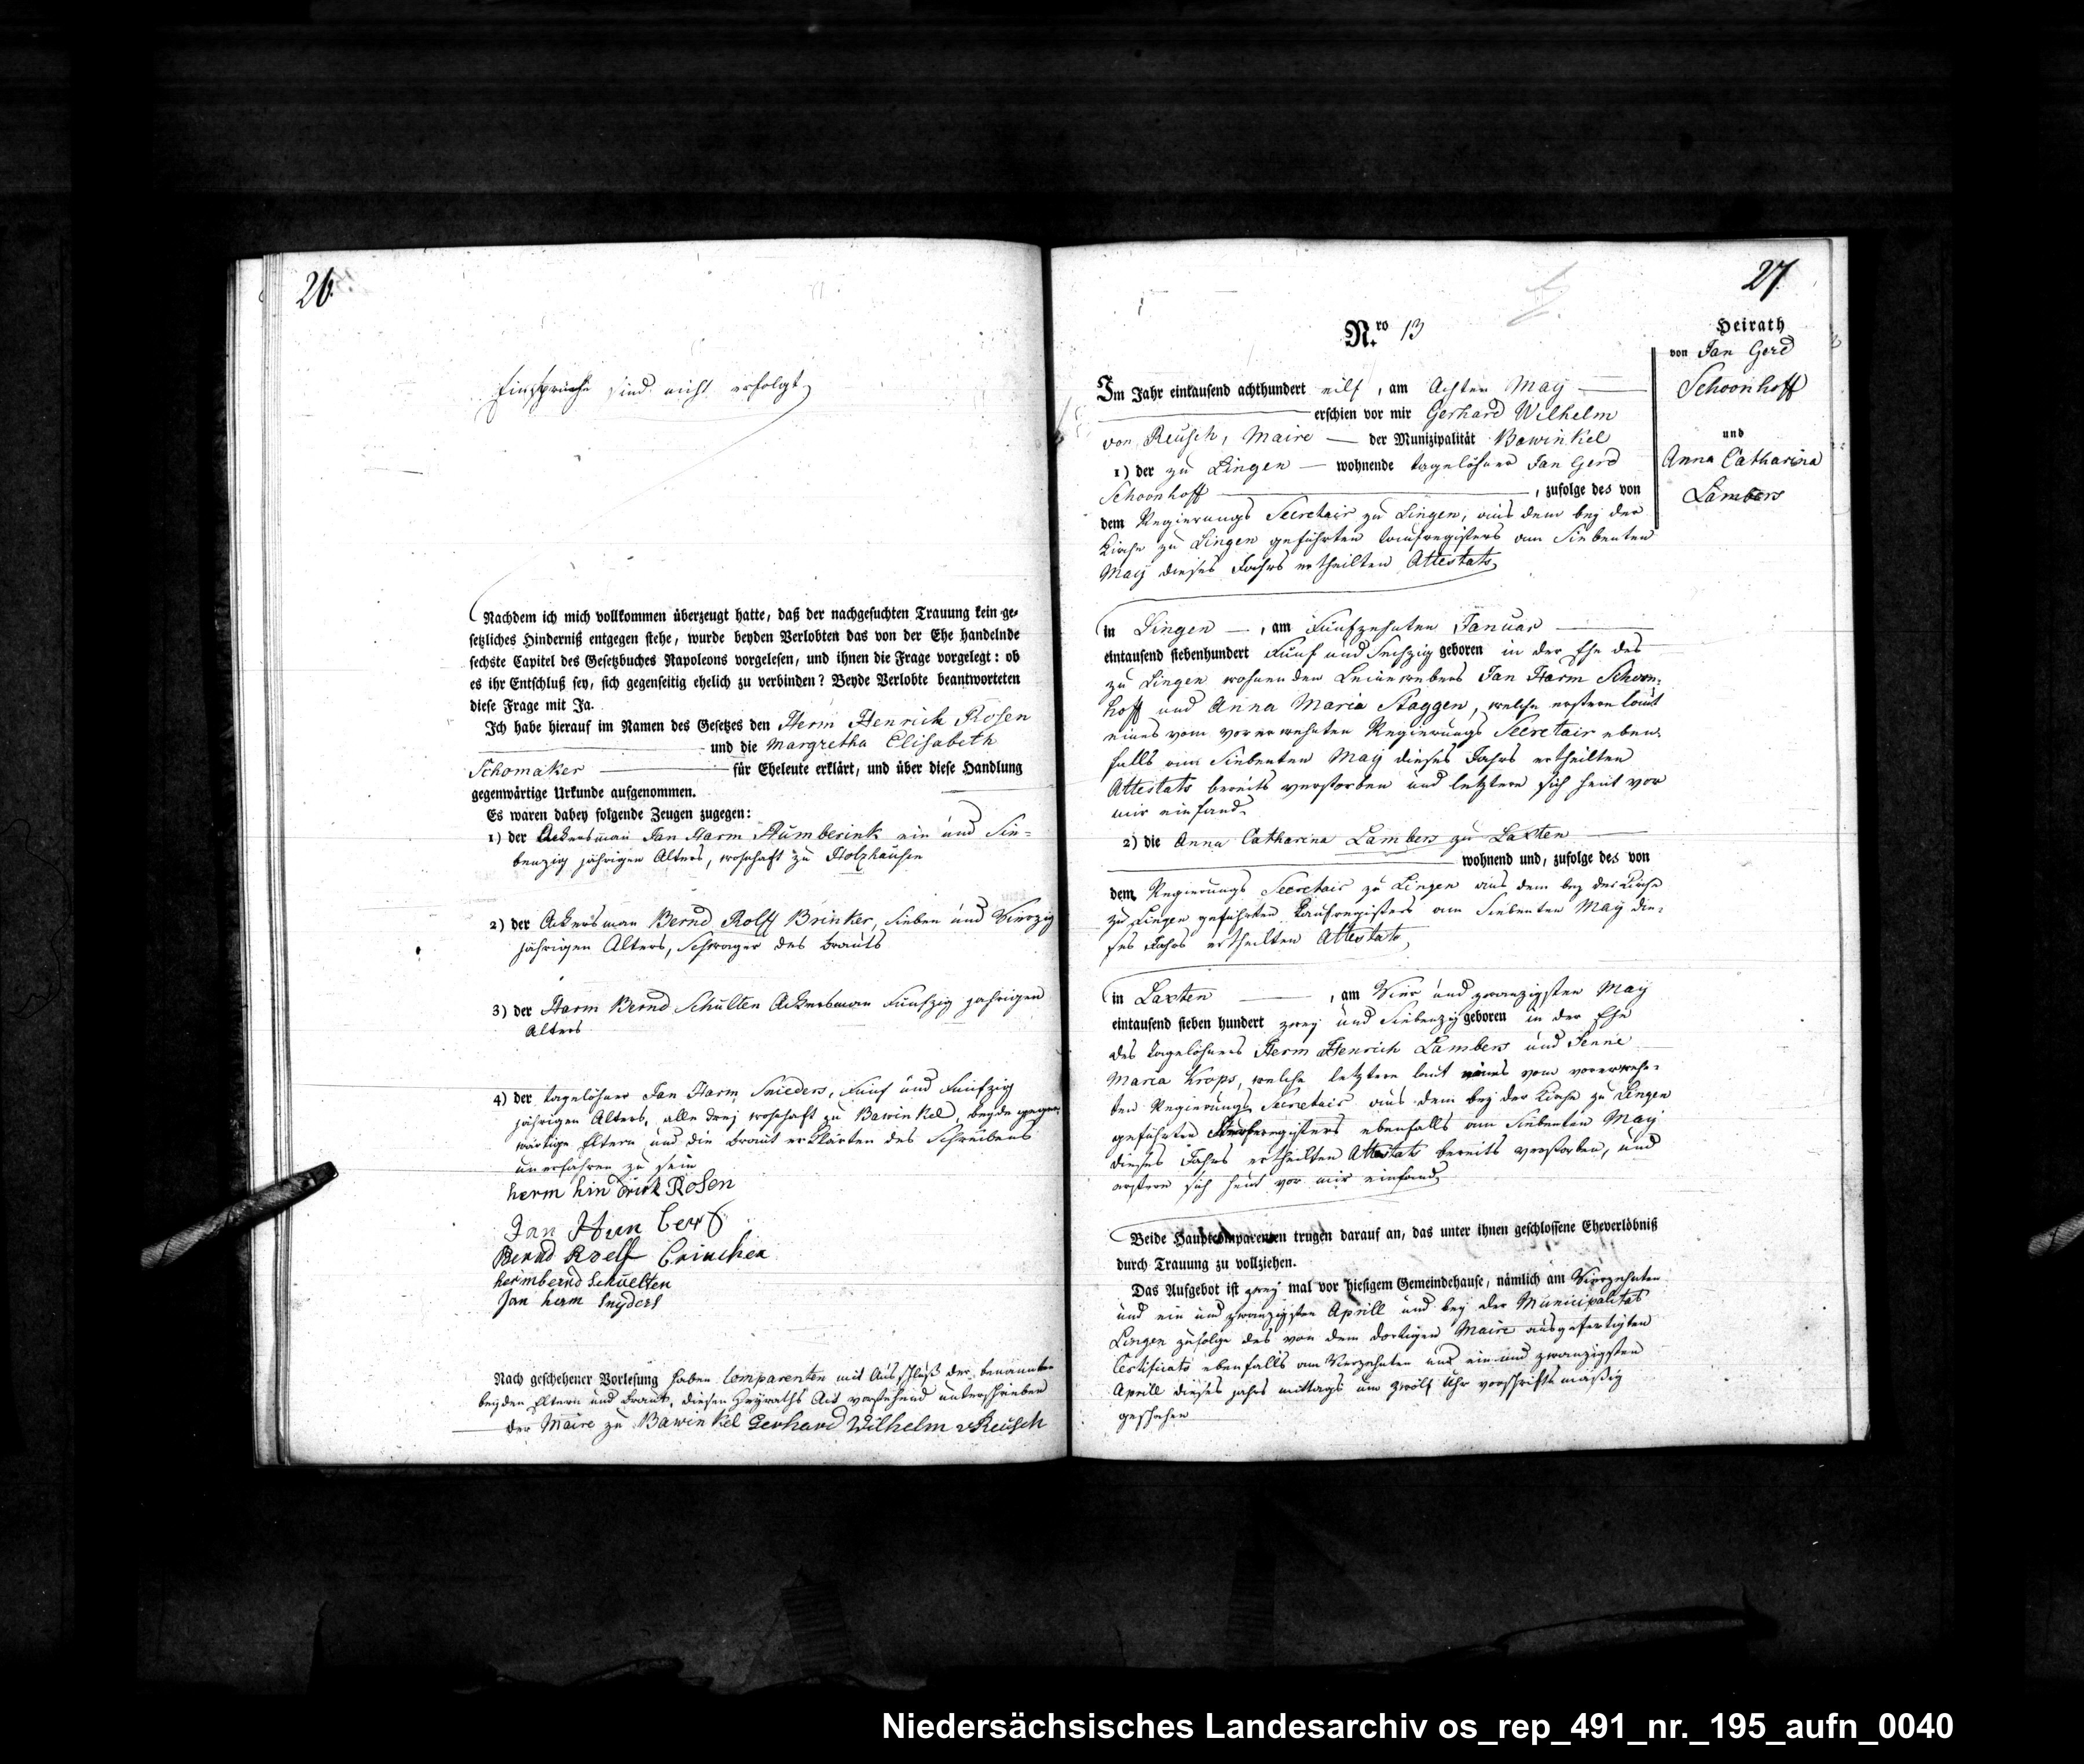 26.
Einsprüche sind nicht erfolgt
Nachdem ich mich vollkommen überzeugt hatte, daß der nachgesuchten Trauung kein ge-
setzliches Hinderniß entgegen stehe, wurde beyden Verlobten das von der Ehe handelnde
sechste Capitel des Gesetzbuches Napoleons vorgelesen, und ihnen die Frage vorgelegt: ob
es ihr Entschluß sey, sich gegenseitig ehelich zu verbinden? Beyde Verlobte beantworteten
diese Frage mit Ja.
Ich habe hierauf im Namen des Gesetzes den Herm Henrich Rosen
und die Margretha Elisabeth
Schomaker für Eheleute erklärt, und über diese Handlung
gegenwärtige Urkunde aufgenommen.
Es waren dabey folgende Zeugen zugegen:
1) der Ackersman Jan Harm Humberink ein und Sie-
benzig jährigen Alters, wohnhaft zu Holzhausen
2) der Ackersman Bernd Rolff Brinker, Sieben und Vierzig
jährigen Alters, Schwager der Braut
3) der Harm Bernd Schulten Ackersman Funfzig jahrigen
Alters
4) der tagelöhner Jan Harm Snieders, Funf und Funfzig
jährigen Alters, alle drej wohnhaft zu Bawinkel, beyde gegen-
wärtige Eltern und die Braut erklärten des Schreibens
unerfahren zu sein
herm hindrick Rosen
Jan Hum
Bernd Roelf Brincker
hermbernd Schuelten
Jan herm Snyders
Nach geschehener Vorlesung haben Comparenten mit Ausschluß der benannten
beyden Eltern und Braut, diesen Heyraths Act vorstehend unterschrieben
der Maire zu Bawinkel Gerhard Wilhelm v Reusch
27.
Nro. 13
Heirath
von Jan Gerd
Schoonhoff
und
Anna Catharina
Lambers
Im Jahr eintausend achthundert eilf, am Achten May
erschien vor mir Gerhard Wilhelm
von Reusch, Maire der Munizipalität Bawinkel
1) der zu Lingen wohnende tagelöhner Jan Gerd
Schoonhoff, zufolge des von
dem Regierungs Secretair zu Lingen, aus dem bej der
Kirche zu Lingen geführten taufregisters am Siebenten
May dieses Jahrs ertheilten Attestats,
in Lingen, am Funfzehnten Januar
eintausend siebenhundert Funf und Sechzig geboren in der Ehe des
zu Lingen wohnenden Leinewebers Jan Harm Schoon-
hoff und Anna Maria Staggen, welche erstere laut
eines vom vorerwehnten Regierungs Secretair eben-
falls am Siebenten May dieses Jahrs ertheilten
Attestats bereits verstorben und letztere sich heut vor
mir einfand.
2) die Anna Catharina Lambers zu Laxten
wohnend und, zufolge des von
dem Regierungs Secretair zu Lingen aus dem bej der Kirche
zu Lingen geführten Taufregisters am Siebenten May die-
ses Jahrs ertheilten Attestats,
in Laxten, am Vier und zwanzigsten May
eintausend sieben hundert zwey und Siebenzig geboren in der Ehe
des tagelöhners Herm Henrich Lambers und Senne
Maria Krops, welche letztere laut eines vom vorerwehn-
ten Regierungs Secretair aus dem bej der Kirche zu Lingen
geführten Sterberegisters ebenfalls am Siebenten May
dieses Jahrs ertheilten Attestats bereits verstorben, und
erstere sich heut vor mir einfand,
Beide Hauptcomparenten trugen darauf an, das unter ihnen geschlossene Eheverlöbniß
durch Trauung zu vollziehen.
Das Aufgebot ist zwej mal vor hiesigem Gemeindehause, nämlich am Vierzehnten
und ein und zwanzigsten Aprill und bej der Municipalitat
Lingen zufolge des von dem dortigen Maire ausgefertigten
Certificats ebenfalls am Vierzehnten und ein und zwanzigsten
Aprill dieses jahrs mittags um zwölf Uhr vorschriftsmäßig
geschehen
Niedersächsisches Landesarchiv os_rep_491_nr._195_aufn_0040